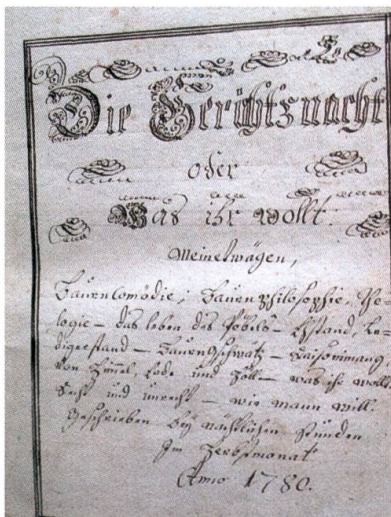 Die Gerichtsnacht
oder
Was ihr wollt.
Meinetwägen,
Bauerncomödie; Bauernphilosophie, Theo-
logie – das leben des Pöbels – Ehstand, Le-
digerstand – Bauerngschwätz –
von Himel, Erde und Höll – was ihr wollt
Recht und unrecht – wie mann will.
Geschrieben bey nächtlichen Stunden
Im Herbstmonat
Anno 1780.